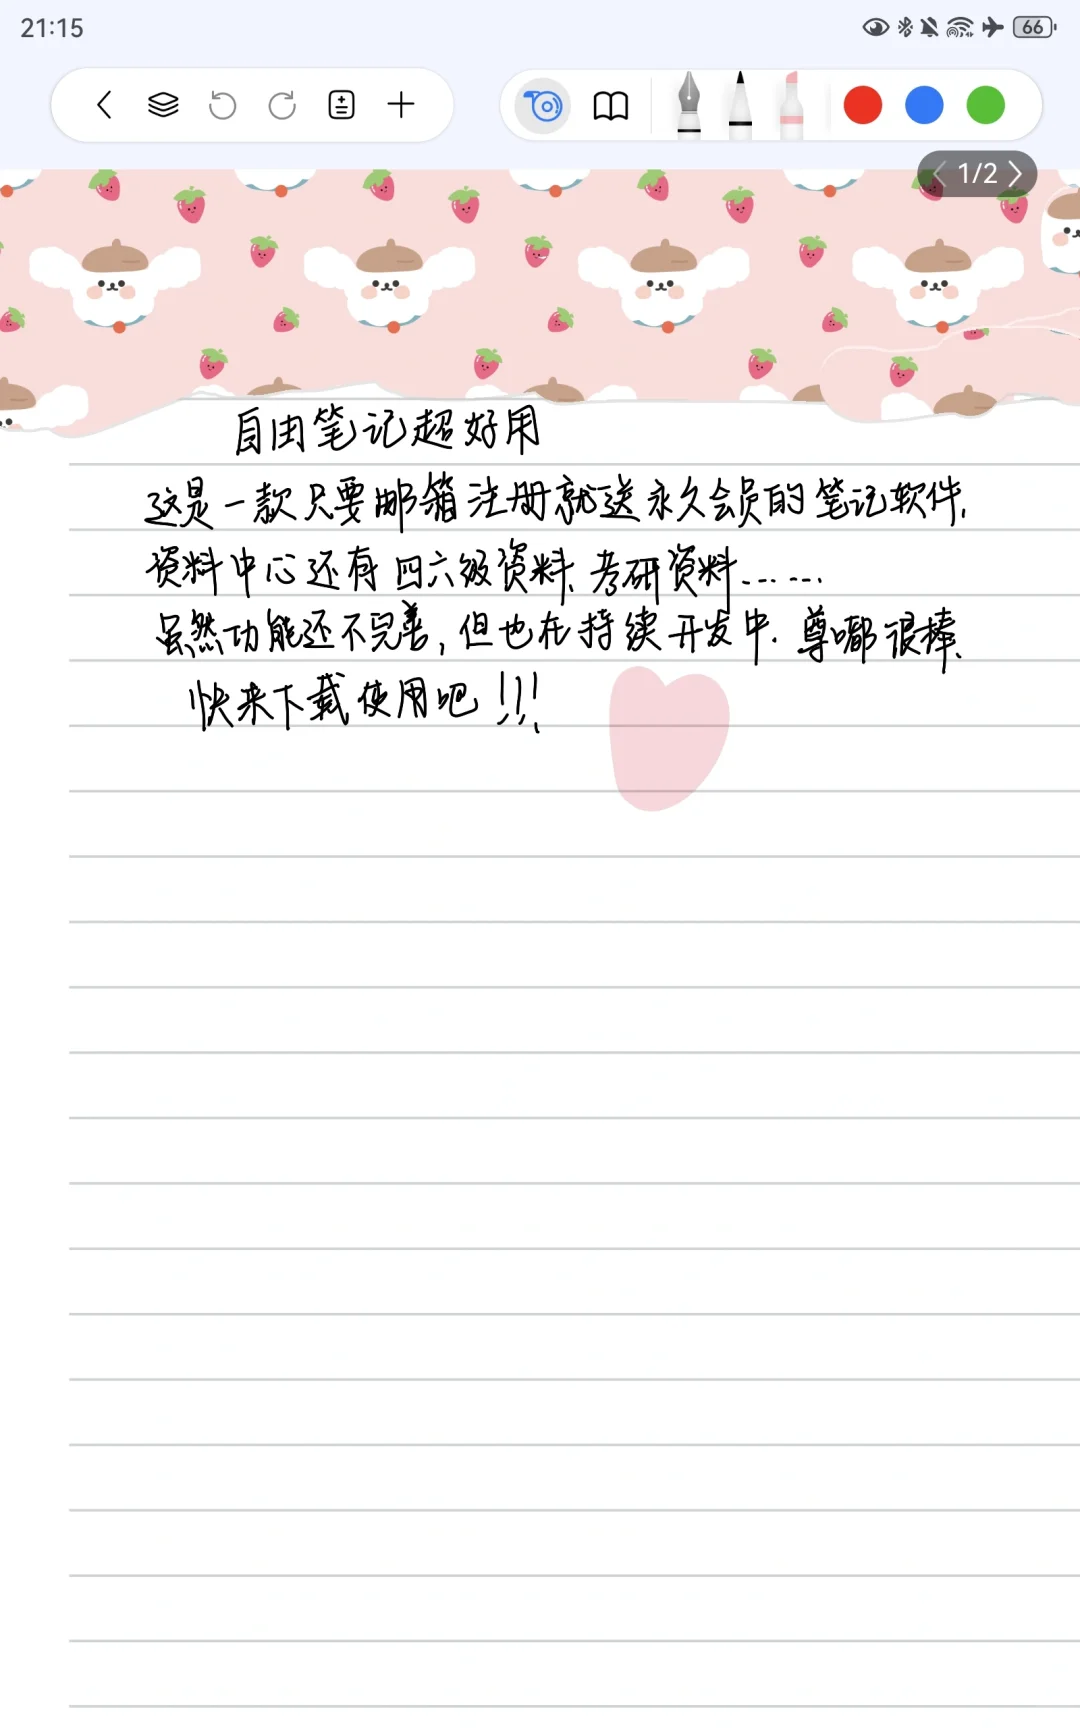 21:15
66
1/2
自由笔记超好用
这是一款只要邮箱注册就送永久会员的笔记软件.
资料中心还有四六级资料、考研资料……
虽然功能还不完善,但也在持续开发中.尊嘟很棒.
快来下载使用吧!!!